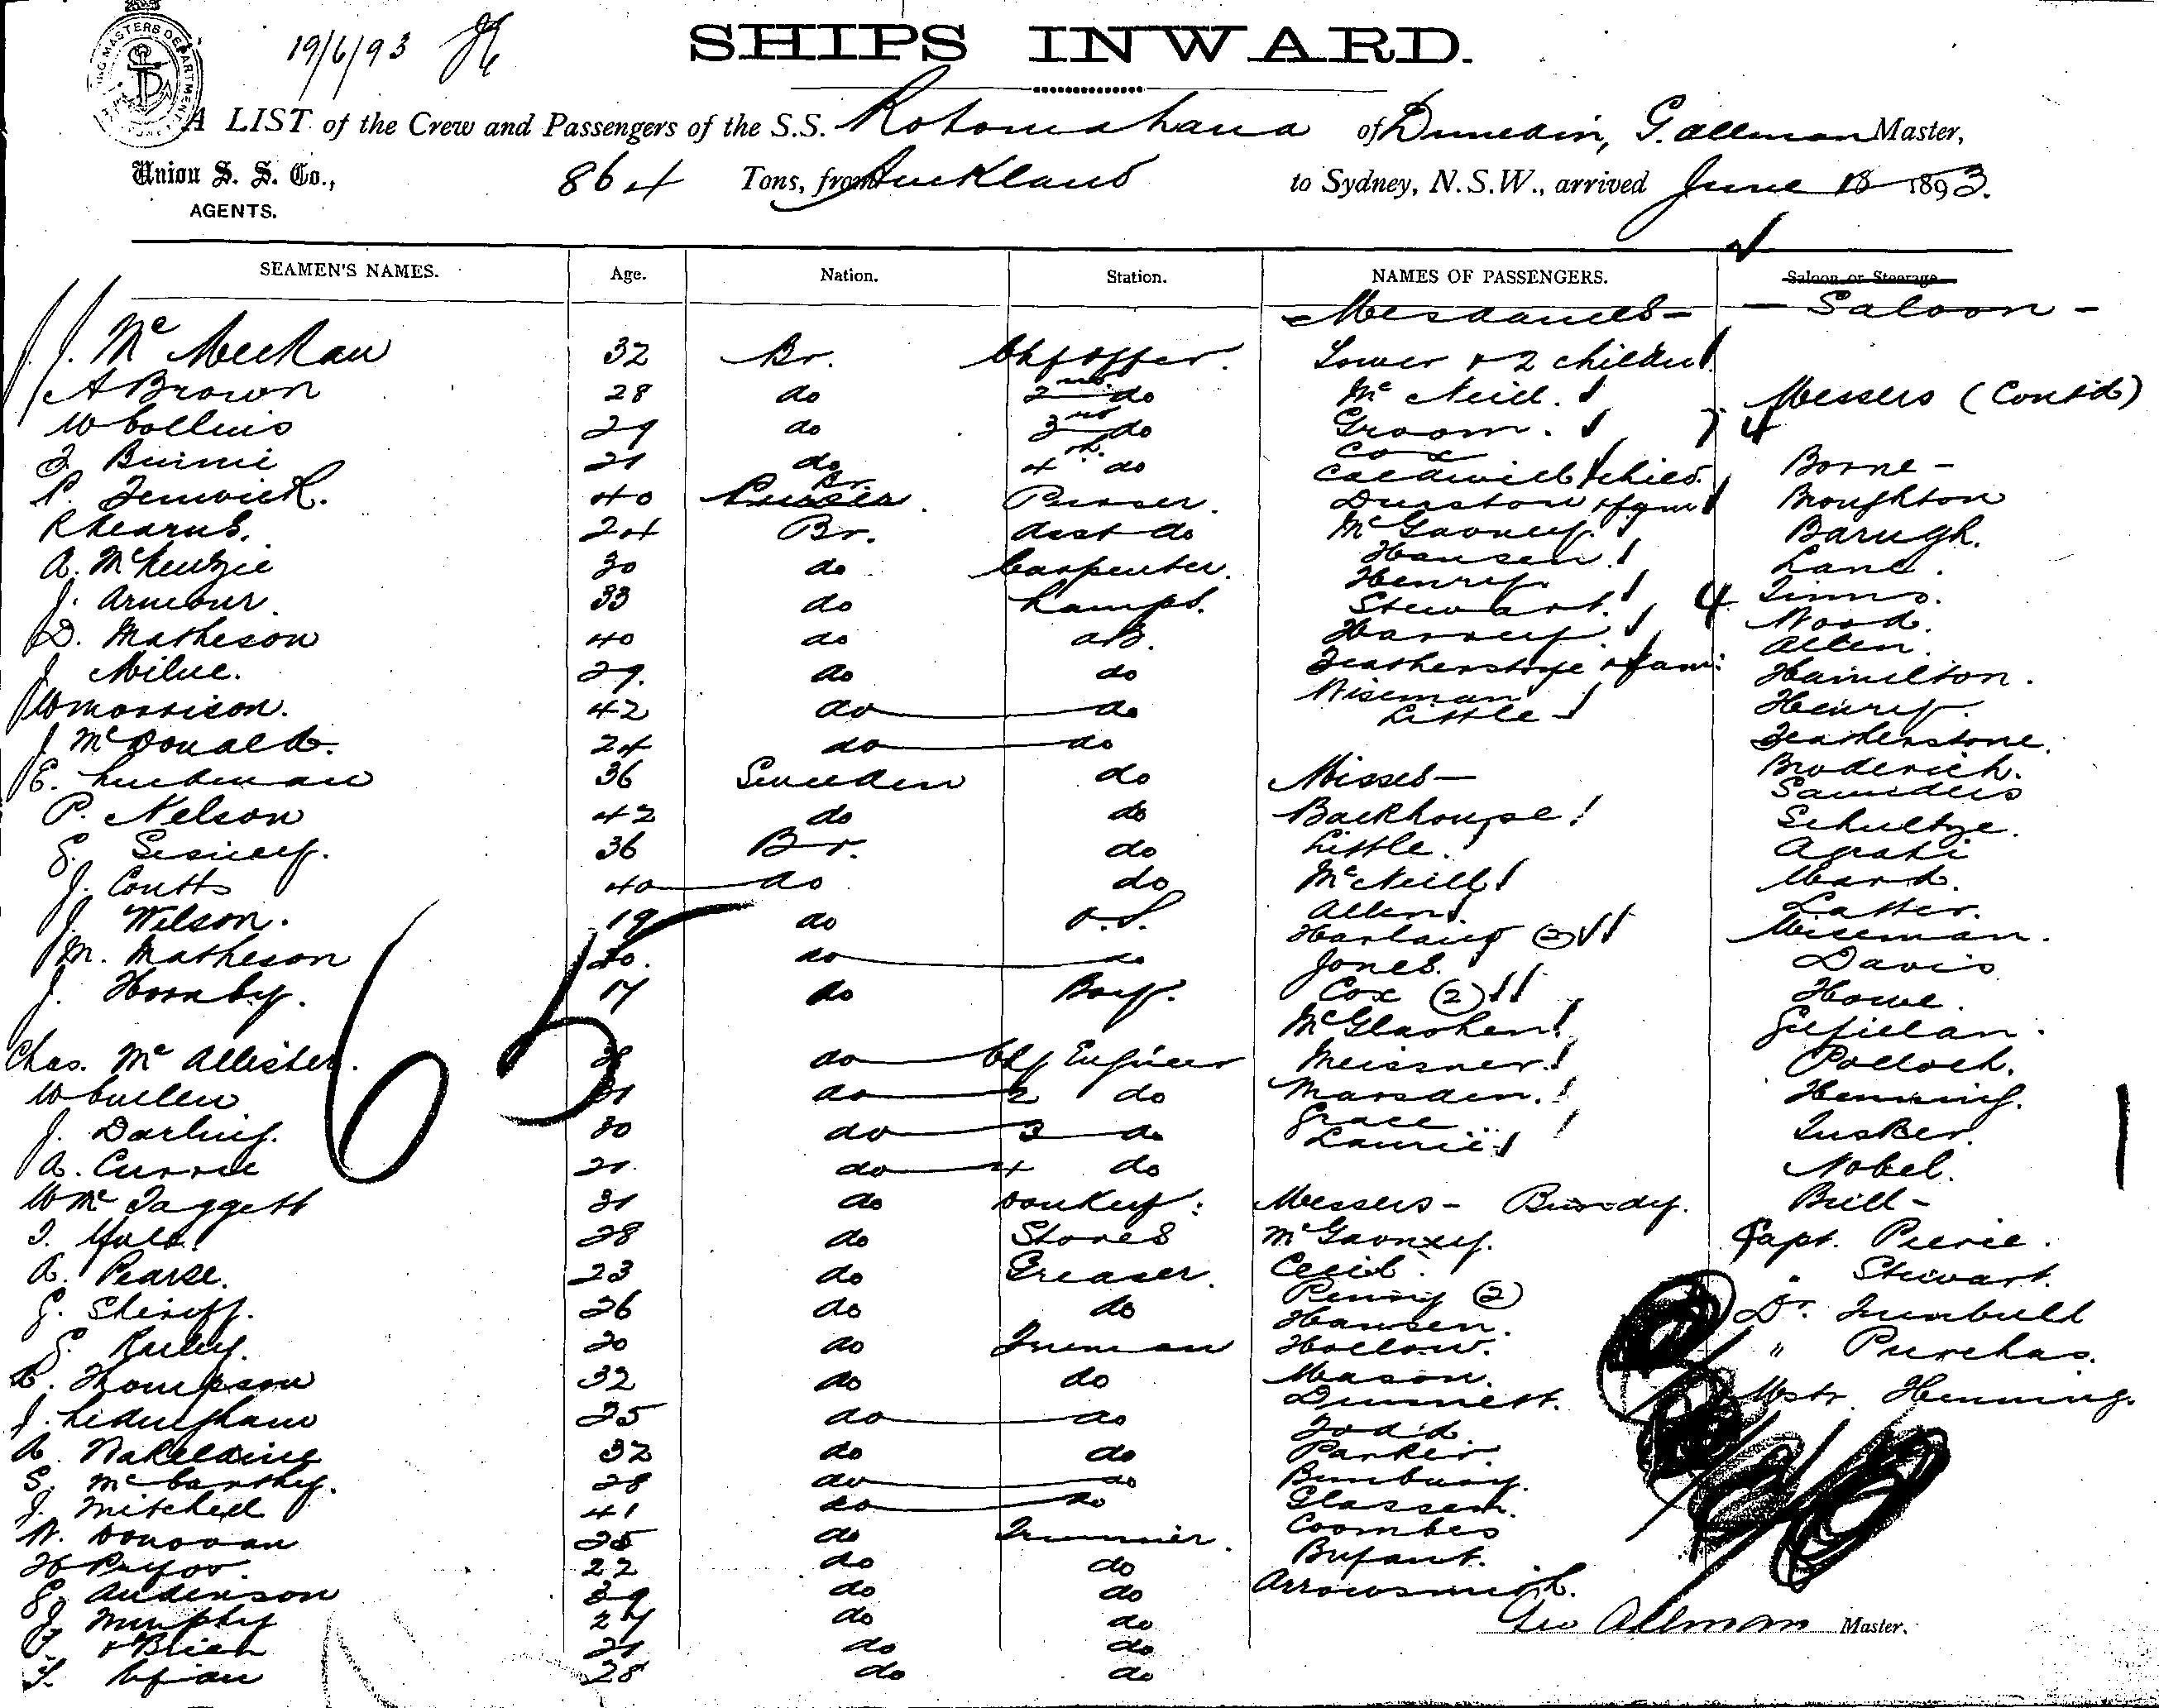 19/6/93
SHIPS INWARD.
A LIST of the Crew and Passengers of the S.S. Rotomahana of Dunedin, G. Allman Master,
Union S. S. Co., 864 Tons, from Auckland to Sydney, N.S.W., arrived June 18 1893.
AGENTS.
SEAMEN'S NAMES. Age. Nation. Station. NAMES OF PASSENGERS. Saloon or Steerage
Mesdames - Saloon -
32 Br. Chf Offcer. Lower & 2 children
A Brown 28 do 2nd do McNeill. Messers (Contd)
W Collins 29 do 3rd do Groom.
Binnie 21 do 4th do Cox Borne -
P. Fenwick. 40 Br. Purser. Caldwell & child. Broughton
R Kearns. 24 Br. Asst do Dunston & fam Barugh.
A. McKenzie 30 do Carpenter. McGavney. Lane.
J. Armour. 33 do Lamps. Hansen. Henry Stewart. 4
D. Matheson 40 do AB. Harvey. Wood. Allen.
J. Milne. 29. do do Featherstone & fam: Hamilton.
W Morrison. 42 do do Wiseman Little Henry.
J. McDonald. 24 do do Featherstone.
E. Lindman 36 Sweeden do Misses - Broderick. Saunders
P. Nelson 42 do do Backhouse Schultze.
36 Br. do Little.
J. Coutts 40 do do McNeill Ward.
J. Wilson. 19 do O.S. Allen. Latter.
M. Matheson 20. do do Harlaing (2) Wiseman.
J. Hornby. 17 do Boy. Jones. Cox (2) Davis Howe.
65
McGlashen Gilfillan.
Chas. McAllister. do Chf Engineer Meissner. Pollock.
W Cullen 31 do 2 do Marsden. Henning.
J. Darling. 30 do 3 do Grace Lusker.
A. Currie 21. do 4 do Laurie Nobel.
W McTaggett 31 do Donkey: Messers - Bundy. Brill -
28 do Stores McGavney. Capt. Peirie.
A. Pearse. 23 do Greaser. Cecil. " Stewart.
G. Sheriff. 26 do do Penny (2) Dr. Turnbull
G. Bailey. 20 do Fireman Hansen. Hollow. " Purchas.
C. Thompson 32 do do Mason. Mstr. Henning.
J. Ledingham 25 do do Dunnett.
A. Wakelding 32 do do Todd. Parker.
S. McCarthy. 28 do do Bunbury.
J. Mitchell 41 do do Glassen.
W. Donovan 25 do Trimmer. Coombes
H Pryor. 22 do do Bryant.
G. Anderson 39 do do Arrowsmith.
J. Murphy 27 do do Geo Allman Master.
O'Brien 21 do do
T. Ryan 28 do do